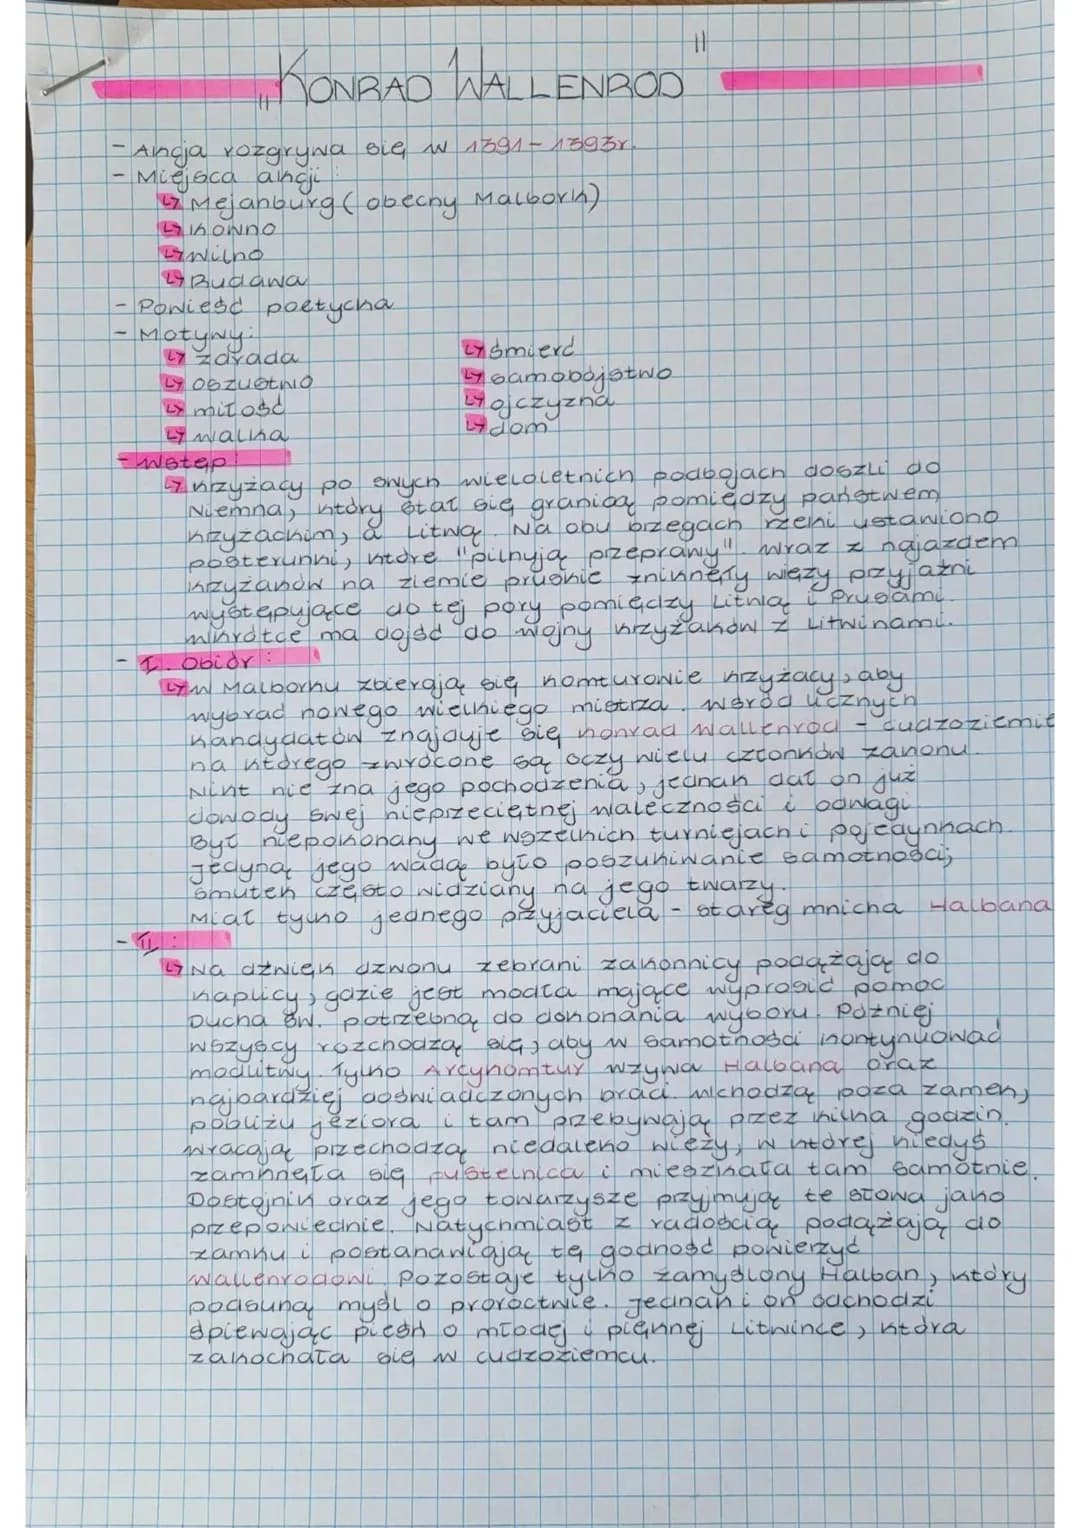 „KONRAD WALLENROD"
- Akcja rozgrywa się w 1391-1393r.
- Miejsca akcji:
↳ Mejanburg (obecny Malbork)
↳ Kowno
↳ Wilno
↳ Budawa
- Powieść poetycka
- Motywy:
↳ zdrada
↳ oszustwo
↳ miłość
↳ walka
↳ śmierć
↳ samobójstwo
↳ ojczyzna
↳ dom
- Wstęp:
↳ Krzyżacy po swych wieloletnich podbojach doszli do
Niemna, który stał się granicą pomiędzy państwem
krzyżackim, a Litwą. Na obu brzegach rzeki ustawiono
posterunki, które "pilnują przeprawy". Wraz z najazdem
krzyżaków na ziemie pruskie zniknęły więzy przyjaźni
występujące do tej pory pomiędzy Litwią i Prusami.
Wkrótce ma dojść do wojny krzyżaków z Litwinami.
- I. Obiór:
↳ W Malborku zbierają się komturowie krzyżacy, aby
wybrać nowego wielkiego mistrza. Wśród licznych
kandydatów znajduje się Konrad Wallenrod - cudzoziemie
na którego zwrócone są oczy wielu członków zakonu.
Nikt nie zna jego pochodzenia, jednak dał on już
dowody swej nieprzeciętnej waleczności i odwagi
Był niepokonany we wszelkich turniejach i pojedynkach.
Jedyną jego wadą było poszukiwanie samotności,
smutek często widziany na jego twarzy.
Miał tylko jednego przyjaciela - stareg mnicha Halbana
- II:
↳ Na dźwięk dzwonu zebrani zakonnicy podążają do
kaplicy, gdzie jest modła mające wyprosić pomoc
Ducha Św. potrzebną do dokonania wyboru. Później
wszyscy rozchodzą się, aby w samotności kontynuować
modlitwy. Tylko Arcykomtur wzywa Halbana oraz
najbardziej doświadczonych braci. Wchodzą poza zamek,
pobliżu jeziora i tam przebywają przez kilka godzin.
Wracają przechodzą niedaleko wieży, w której kiedyś
zamknęła się pustelnica i mieszkała tam samotnie.
Dostojnik oraz jego towarzysze przyjmują te słowa jako
przepowiednie. Natychmiast z radością podążają do
zamku i postanawiają tę godność powierzyć
Wallenrodowi. Pozostaje tylko zamyślony Halban, który
podsuną myśl o proroctwie. Jednak i on odchodzi
śpiewając pieśń o młodej i pięknej Litwince, która
zakochała się w cudzoziemcu.